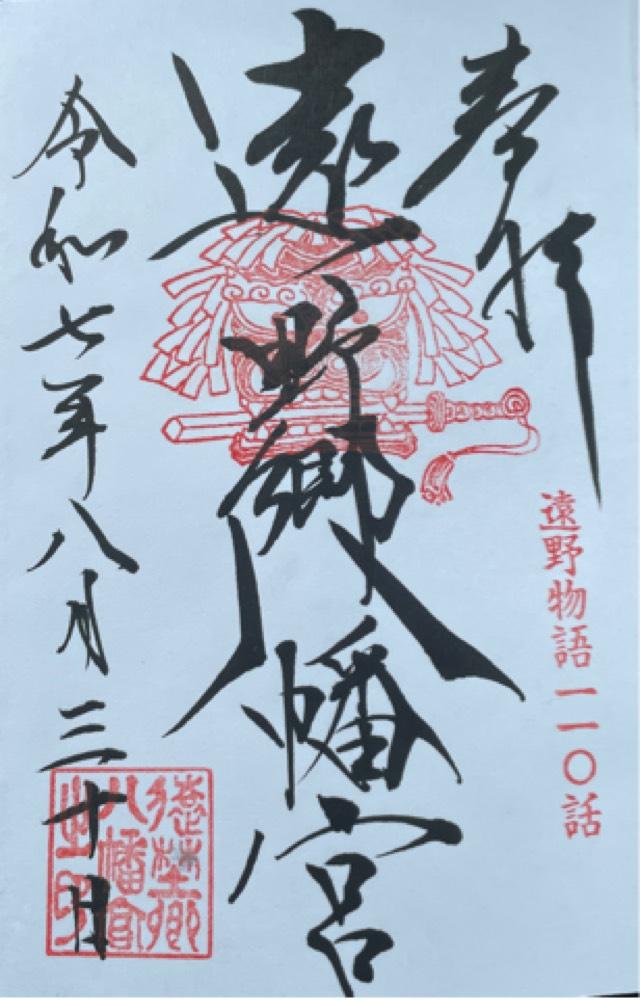 奉拝
遠野物語一一〇話
遠野郷八幡宮
令和七年八月三十日
遠野郷
八幡宮
之印